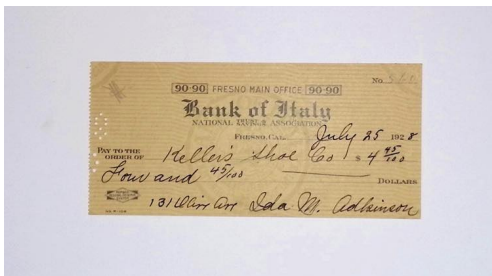 No
90-90 FRESNO MAIN OFFICE 90-90
Bank of Italy
NATIONAL ASSOCIATION
FRESNO, CAL. July 25 1928
PAY TO THE ORDER OF Keller's Shoe Co $ 4 45/100
Four and 45/100 DOLLARS
131 Ave Ida M. Adkinson